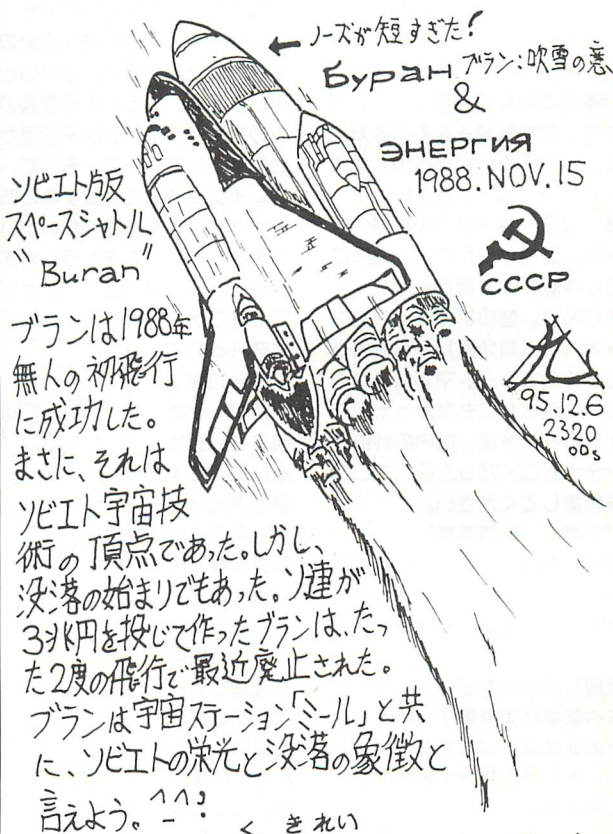 ノーズが短すぎた!
Буран ブラン:吹雪の意
&
ЭНЕРГИЯ
1988.NOV.15
CCCP
ソビエト版
スペースシャトル
"Buran"
95.12.6
2320
00s
ブランは1988年
無人の初飛行
に成功した。
まさに、それは
ソビエト宇宙技
術の頂点であった。しかし、
没落の始まりでもあった。ソ連が
3兆円を投じて作ったブランは、たっ
た2度の飛行で最近廃止された。
ブランは宇宙ステーション「ミール」と共
に、ソビエトの栄光と没落の象徴と
言えよう。^^;
く きれい